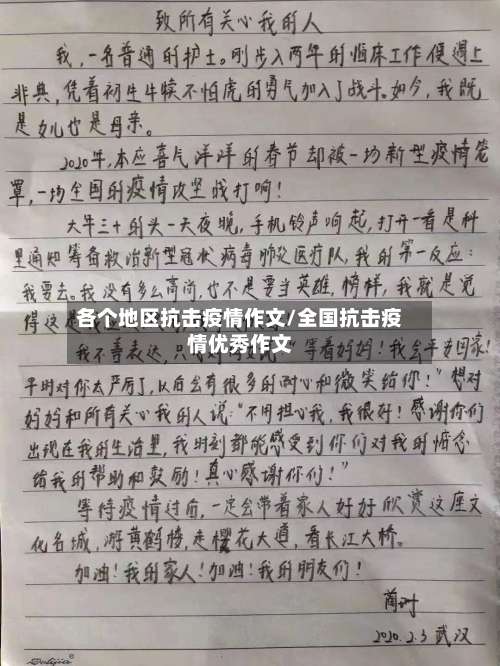 致所有关心我的人
我,一名普通的护士。刚步入两年的临床工作便遇上
非典,凭着初生牛犊不怕虎的勇气加入了战斗。如今,我既
是女儿也是母亲。
2020年,本应喜气洋洋的春节却被一场新型疫情笼
罩,一场全国的疫情攻坚战打响!
大年三十的头一天夜晚,手机铃声响起,打开一看是科
里通知筹备救治新型冠状病毒肺炎医疗队,我的第一反应:
我要去。我没有多么高尚,也不是要当英雄,榜样,我就是觉
得这是
各个地区抗击疫情作文/全国抗击疫
情优秀作文
我不善表达,只 "等着妈妈!我会平安回家!
平时对你太严厉了,以后会有很多的耐心和微笑给你!"想对
妈妈和所有关心我的人说:"不用担心我,我很好!感谢你们
出现在我的生活里,我时刻都能感受到你们对我的惦念
给我的帮助和鼓励!真心感谢你们!"
等待疫情过后,一定会带着家人好好欣赏这座文
化名城,游黄鹤楼,走樱花大道,看长江大桥。
加油!我的家人!加油!我的朋友们!
2020.2.3 武汉